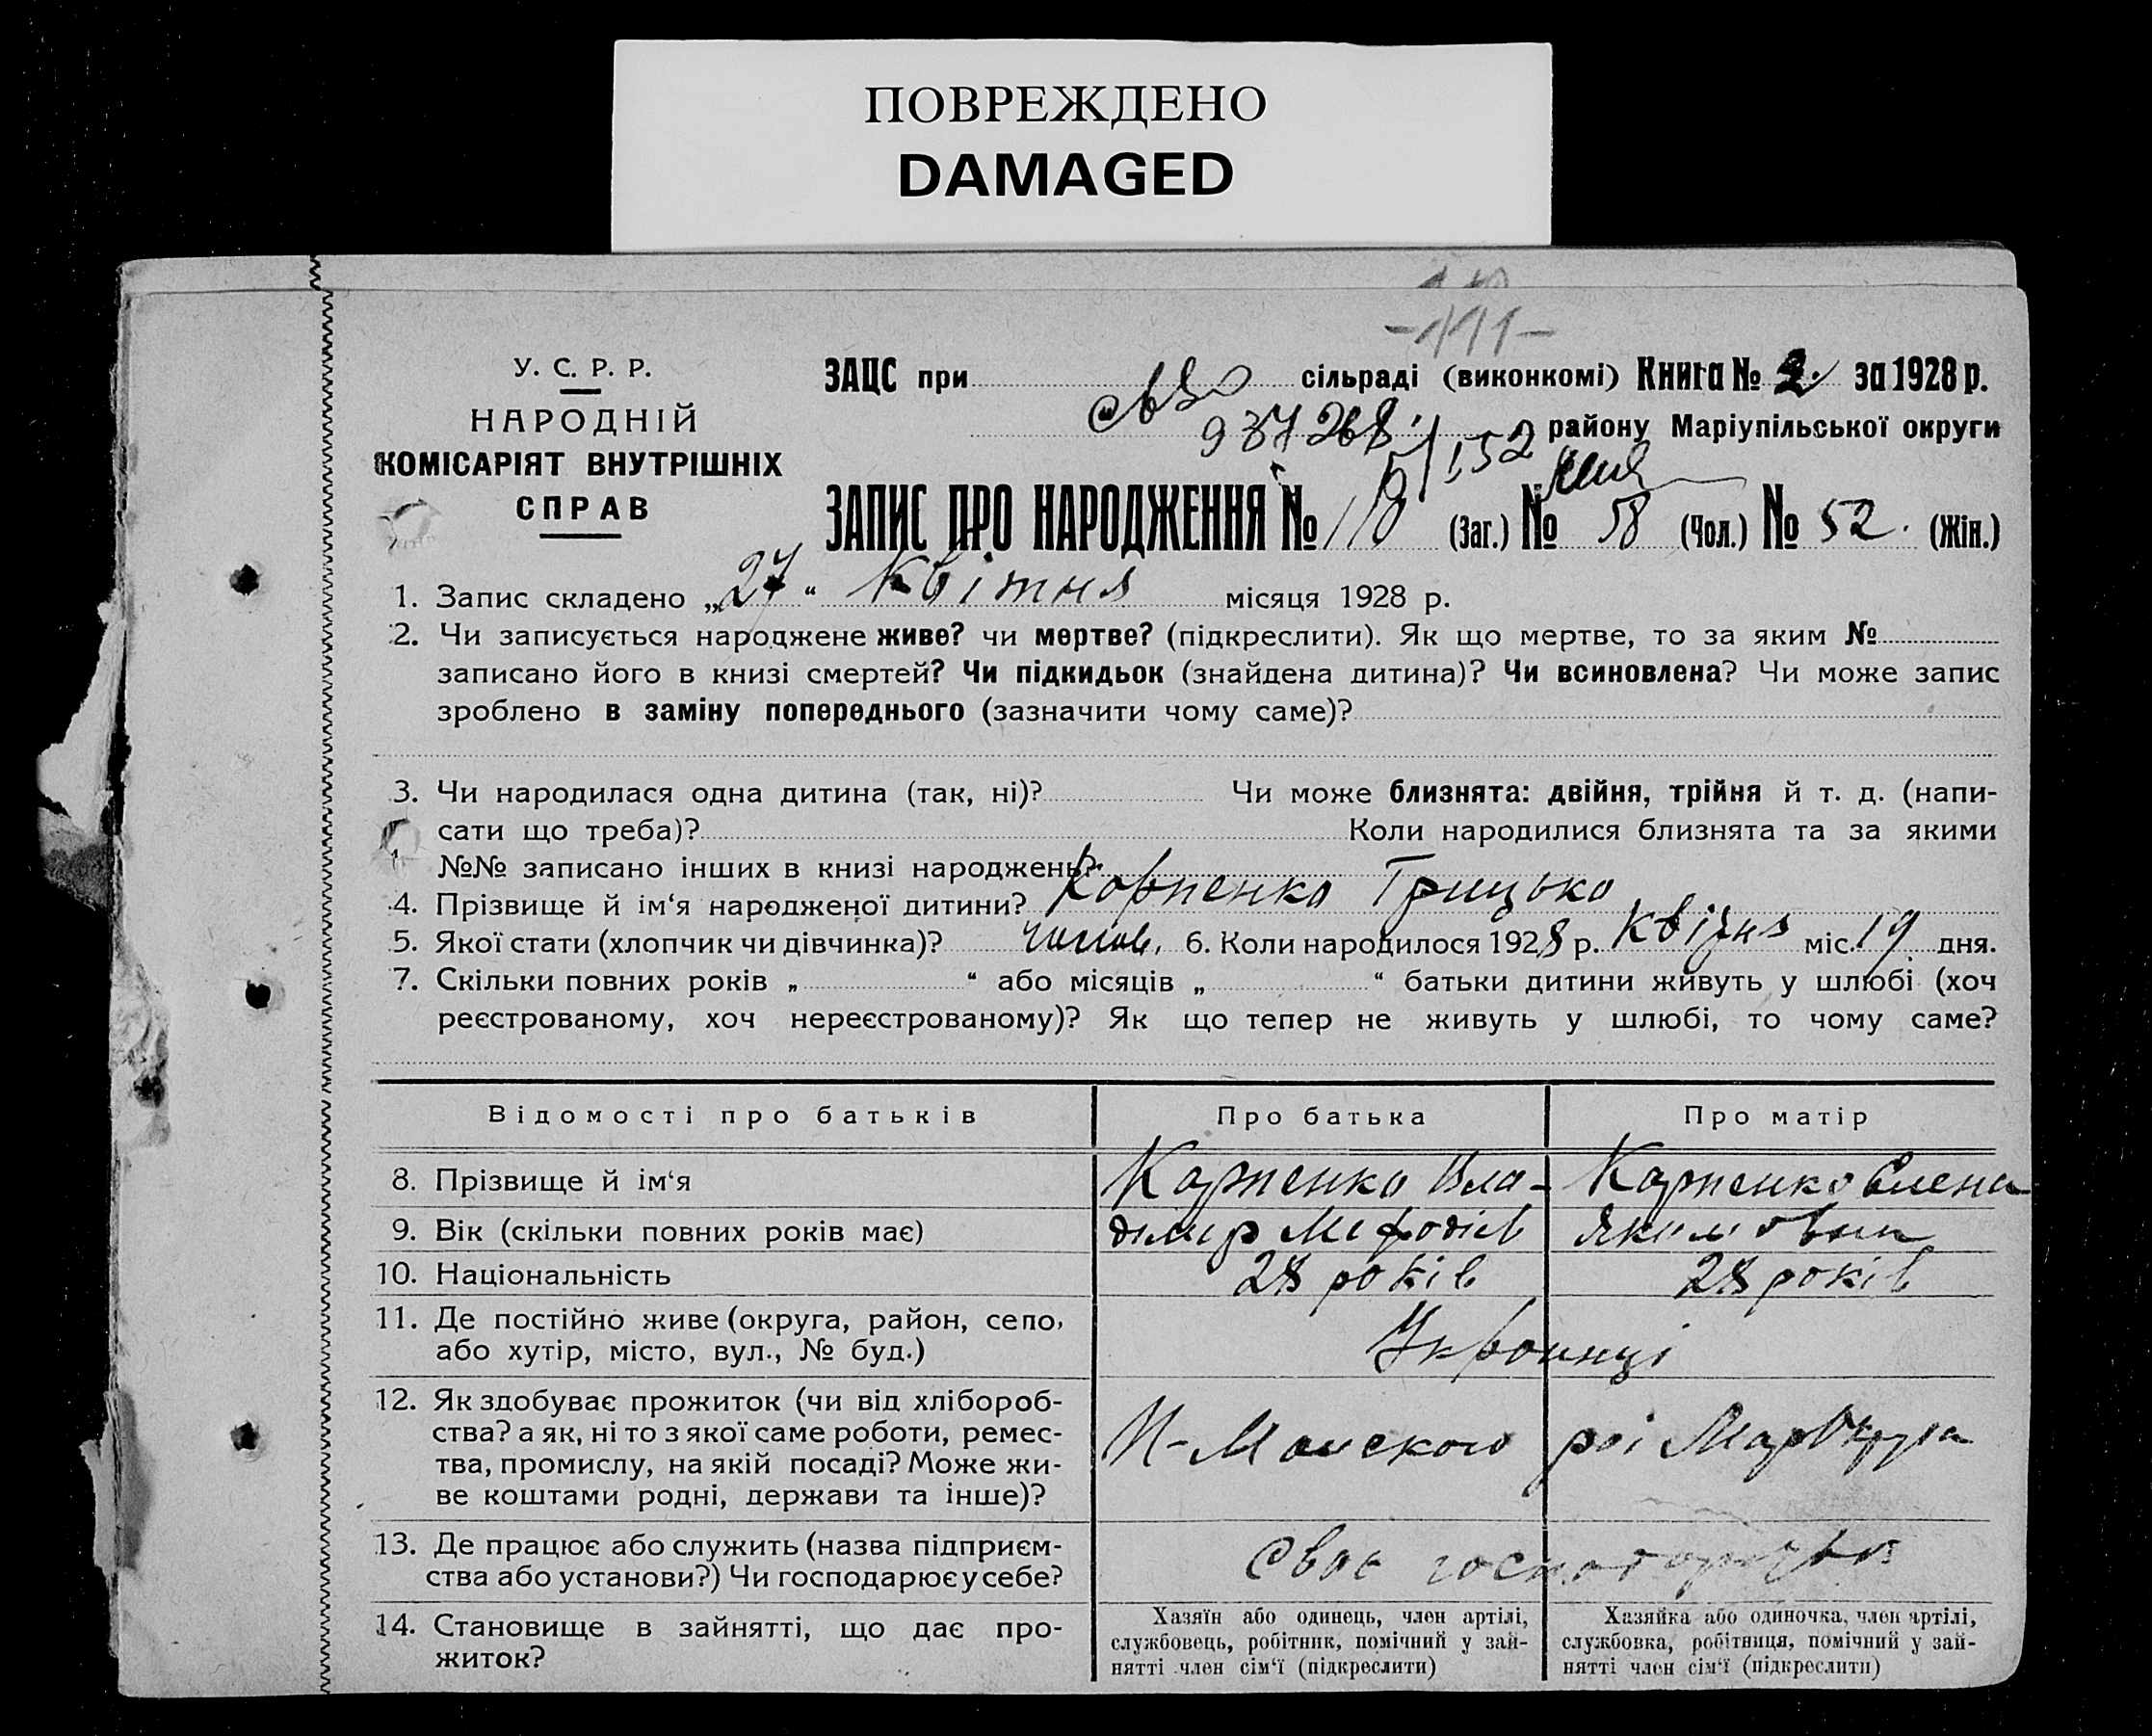 ПОВРЕЖДЕНО
DAMAGED
-111-
У. С. Р. Р.
НАРОДНІЙ
КОМІСАРІЯТ ВНУТРІШНІХ
СПРАВ
ЗАЦС при сільраді (виконкомі) Книга № 2. за 1928 р.
937268 району Маріупільської округи
5/152
ЗАПИС ПРО НАРОДЖЕННЯ № 110 (Заг.) № 58 (Чол.) № 52. (Жін.)
1. Запис складено „27“ Квітня місяця 1928 р.
2. Чи записується народжене живе? чи мертве? (підкреслити). Як що мертве, то за яким №
записано його в книзі смертей? Чи підкидьок (знайдена дитина)? Чи всиновлена? Чи може запис
зроблено в заміну попереднього (зазначити чому саме)?
3. Чи народилася одна дитина (так, ні)? Чи може близнята: двійня, трійня й т. д. (напи-
сати що треба)? Коли народилися близнята та за якими
№№ записано інших в книзі народжень?
4. Прізвище й ім‘я народженої дитини? Карпенко Грицько
5. Якої стати (хлопчик чи дівчинка)? чолов. 6. Коли народилося 1928 р. Квітня міс. 19 дня.
7. Скільки повних років „ “ або місяців „ “ батьки дитини живуть у шлюбі (хоч
реєстрованому, хоч нереєстрованому)? Як що тепер не живуть у шлюбі, то чому саме?
Відомості про батьків Про батька Про матір
8. Прізвище й ім‘я Карпенко Вла- Карпенко Елена
9. Вік (скільки повних років має) дімир Мефодіев Якимовна
10. Національність 28 років 28 років
11. Де постійно живе (округа, район, село,
або хутір, місто, вул., № буд.) Украинці
12. Як здобуває прожиток (чи від хлібороб-
ства? а як, ні то з якої саме роботи, ремес-
тва, промислу, на якій посаді? Може жи-
ве коштами родні, держави та інше)?
13. Де працює або служить (назва підприєм- Своє господарство
ства або установи?) Чи господарює у себе?
14. Становище в зайнятті, що дає про-
житок?
Хазяїн або одинець, член артілі,
службовець, робітник, помічний у зай-
нятті член сім‘ї (підкреслити)
Хазяйка або одиночка, член артілі,
службовка, робітниця, помічний у зай-
нятті член сім‘ї (підкреслити)